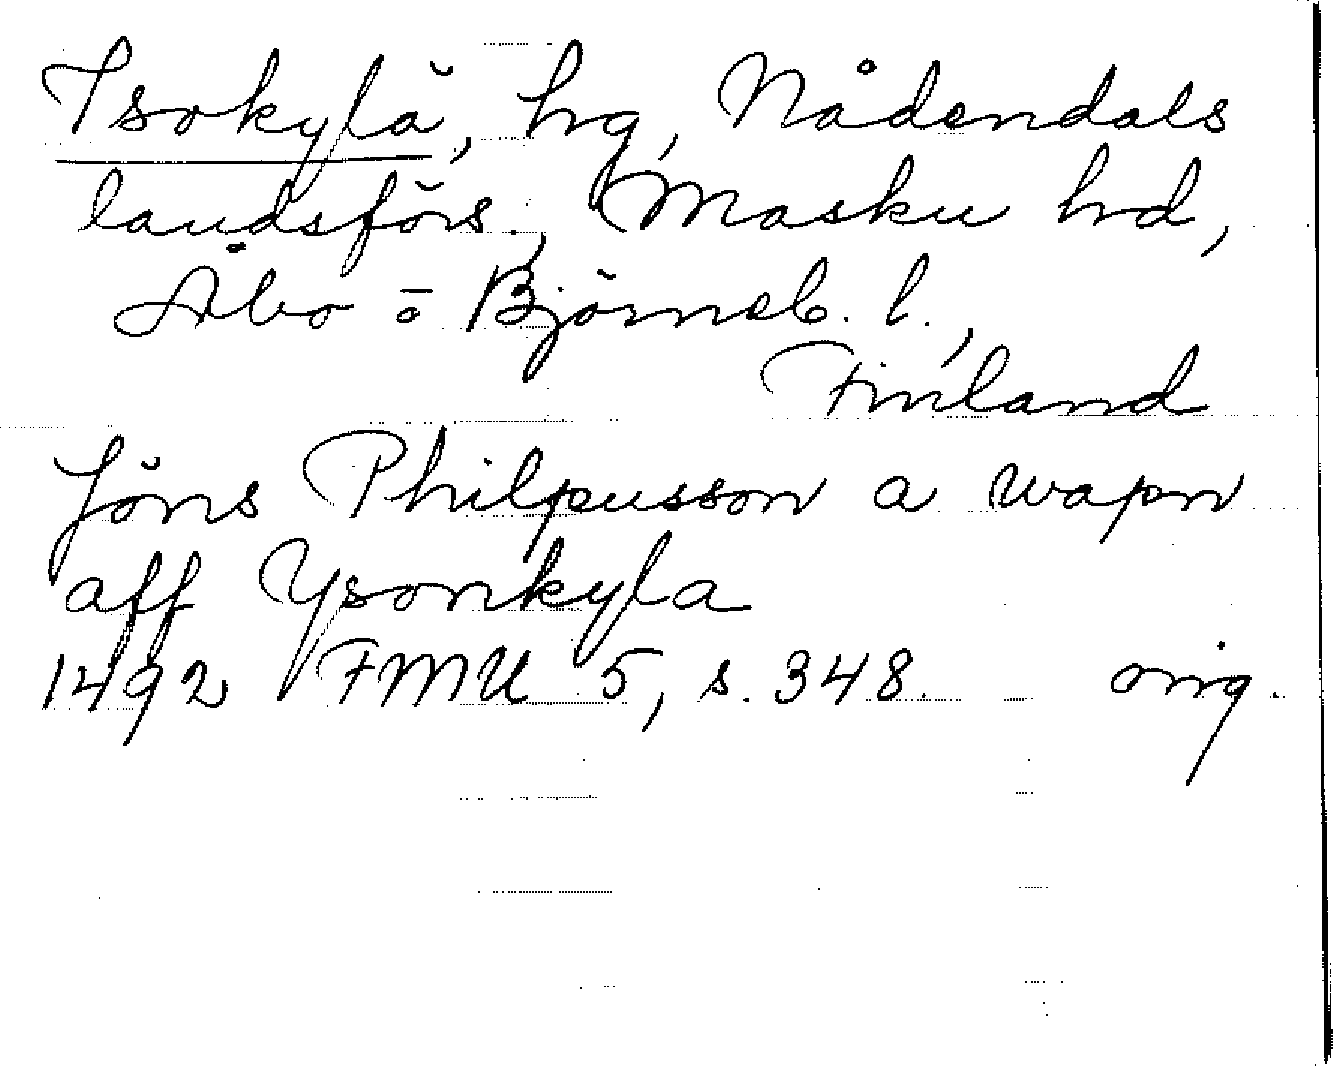 Isokylä, hg, Nådendals
landsförs., Masku hd,
Åbo o Björneb. l.,
Finland
Jöns Philpusson a wapn
aff Ysonkyla
1492 FMU 5, s. 348. orig.